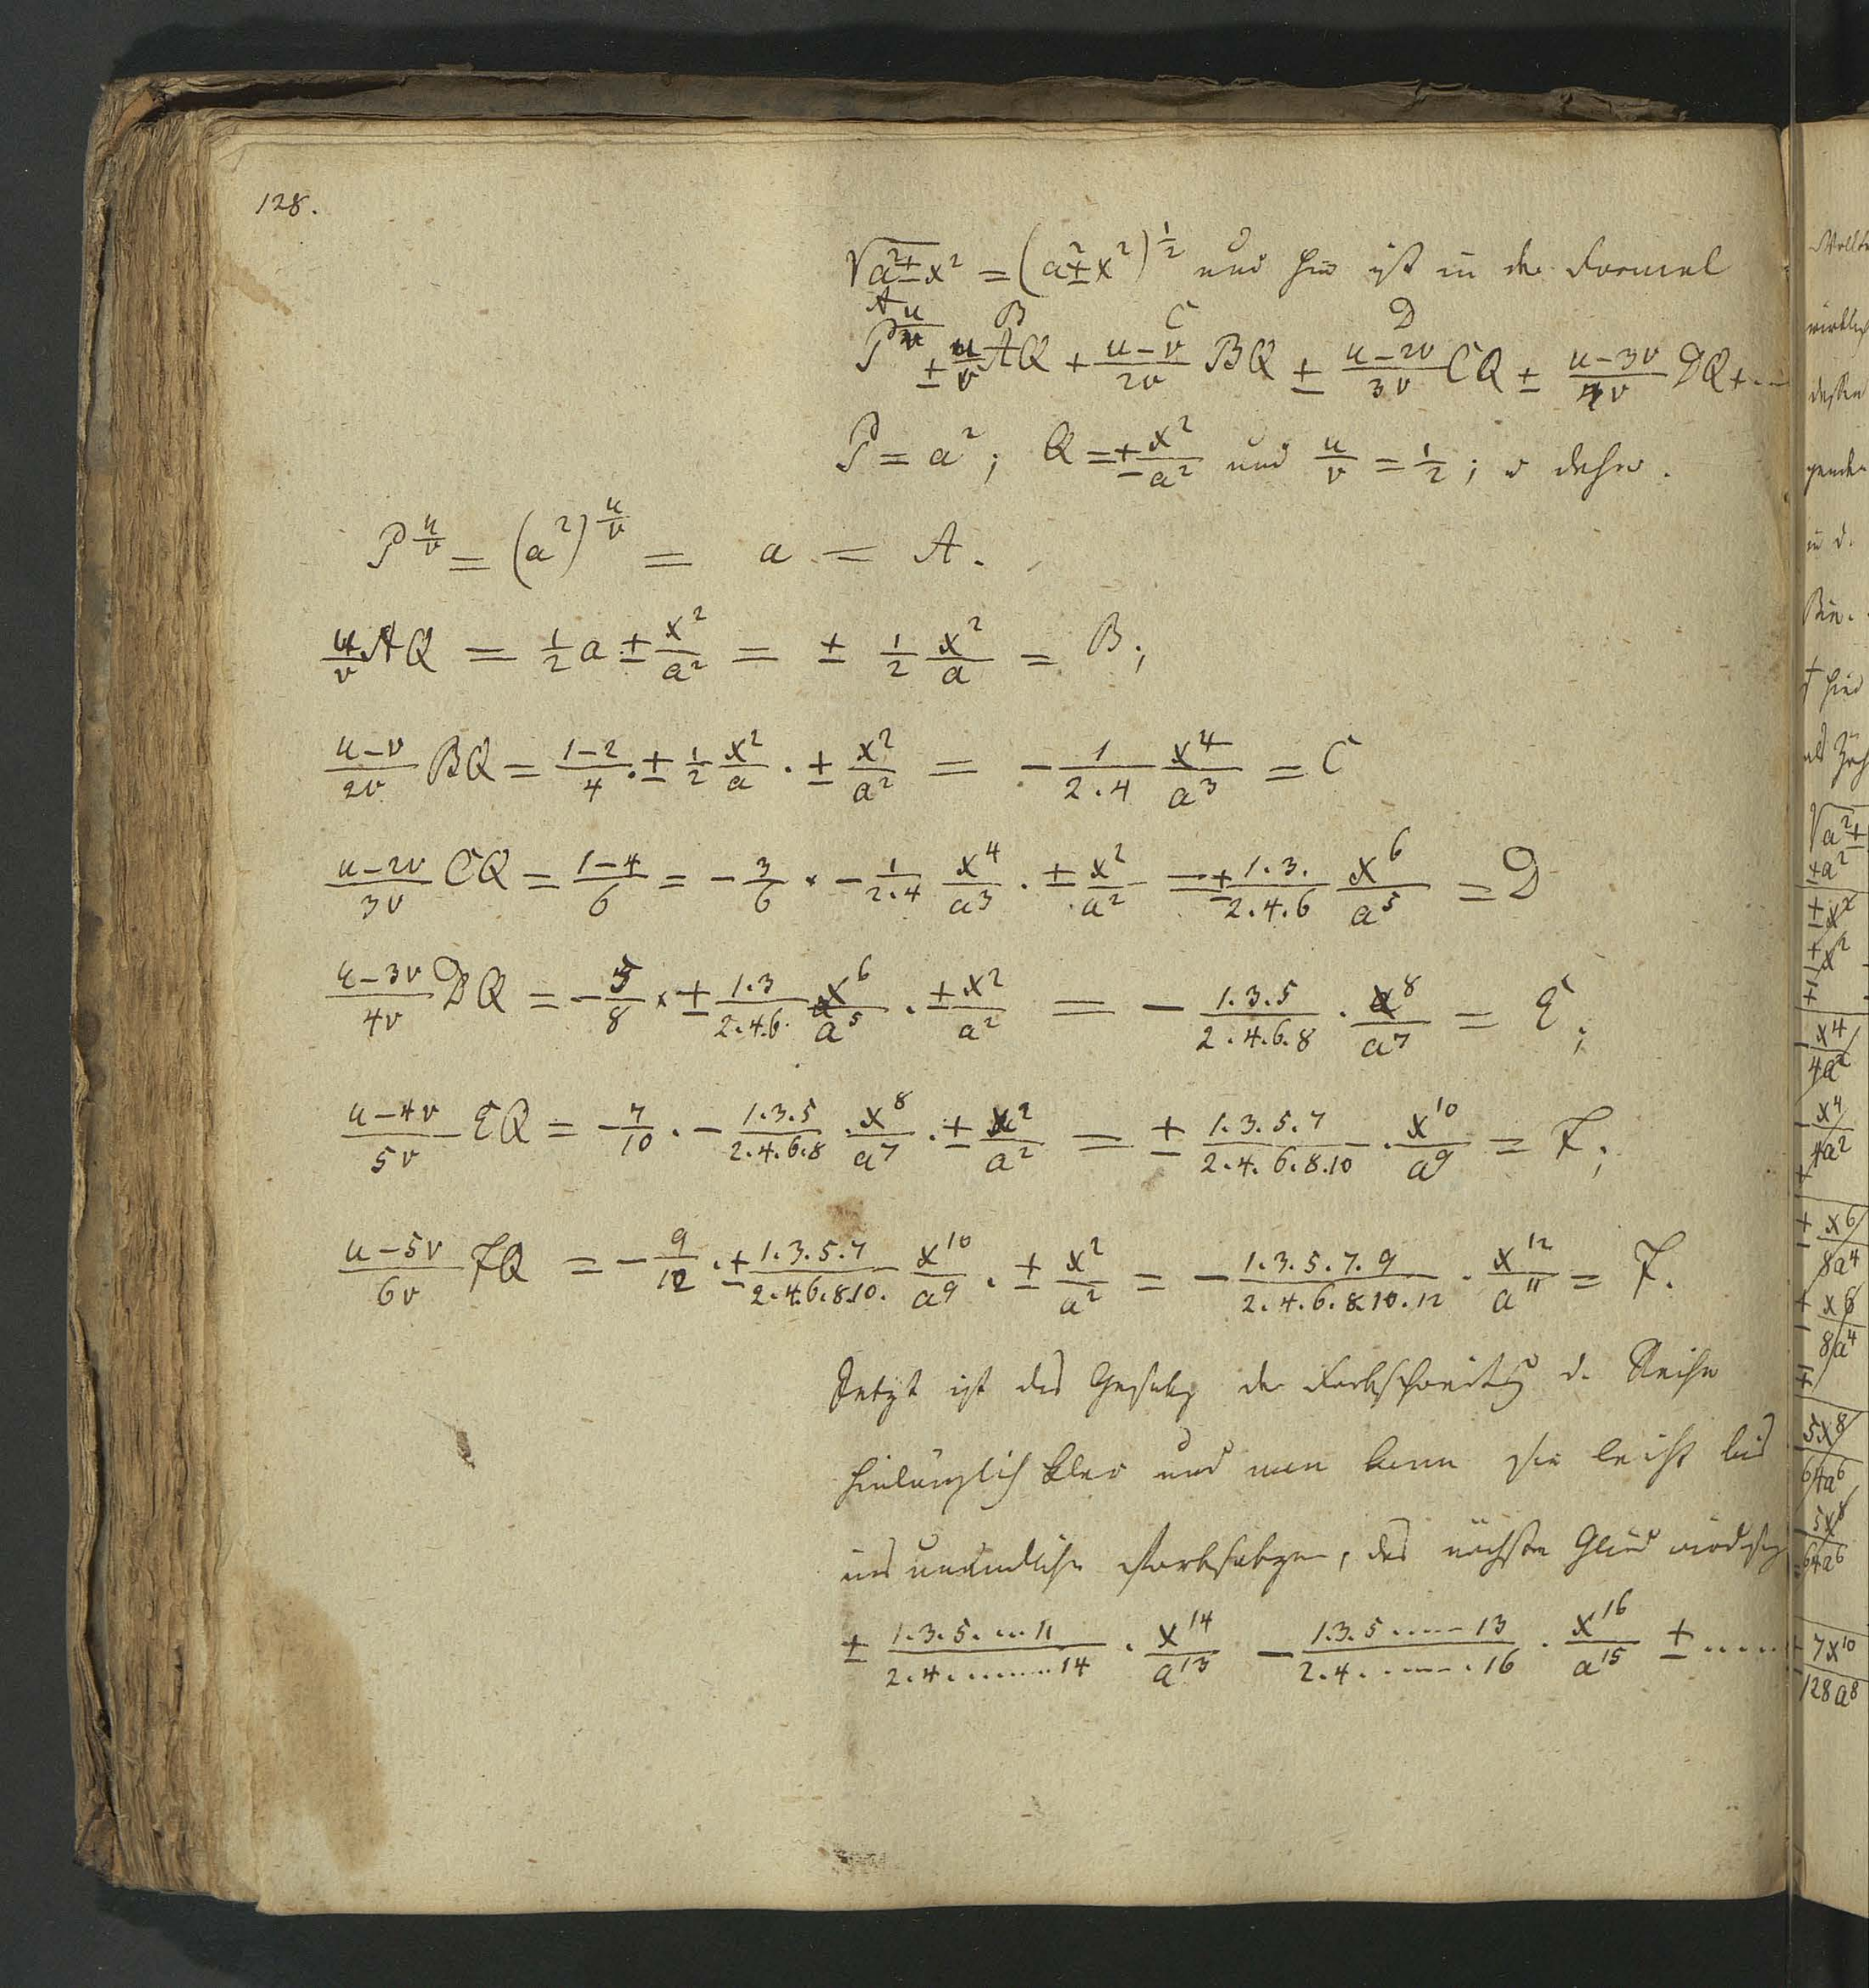 128.
√a²±x² = (a²±x²)^½ und hier ist in der Formel
A B C D
P^u/v ± u/v AQ + u−v/2v BQ ± u−2v/3v CQ ± u−3v/4v DQ + ...
P = a²; Q = ± x²/a² und u/v = ½; u daher.
P^u/v = (a²)^u/v = a = A.
u/v AQ = ½ a ± x²/a² = ± ½ x²/a = B;
u−v/2v BQ = 1−2/4 . ± ½ x²/a . ± x²/a² = − 1/2.4 x⁴/a³ = C
u−2v/3v CQ = 1−4/6 = − 3/6 × − 1/2.4 x⁴/a³ . ± x²/a² = ± 1.3./2.4.6 x⁶/a⁵ = D
u−3v/4v DQ = − 5/8 × ± 1.3/2.4.6. x⁶/a⁵ . ± x²/a² = − 1.3.5/2.4.6.8 . x⁸/a⁷ = E;
u−4v/5v EQ = − 7/10 . − 1.3.5/2.4.6.8 . x⁸/a⁷ . ± x²/a² = ± 1.3.5.7/2.4.6.8.10 . x¹⁰/a⁹ = F;
u−5v/6v FQ = − 9/12 . ± 1.3.5.7/2.4.6.8.10. x¹⁰/a⁹ . ± x²/a² = − 1.3.5.7.9/2.4.6.8.10.12 . x¹²/a¹¹ = F.
Jetzt ist das Gesetz der Fortschreitg d. Reihe
hinlänglich klar und man kann sie leicht bis
ins unendliche fortsetzen, das nächste Glied
± 1.3.5....11/2.4........14 . x¹⁴/a¹³ − 1.3.5......13/2.4.......16 . x¹⁶/a¹⁵ ± .....
√a²±
±a²
±x²
±x²
x⁴/4a²
x⁴/4a²
± x⁶/8a⁴
± x⁶/8a⁴
5x⁸/64a⁶
5x⁸/64a⁶
7x¹⁰/128a⁸